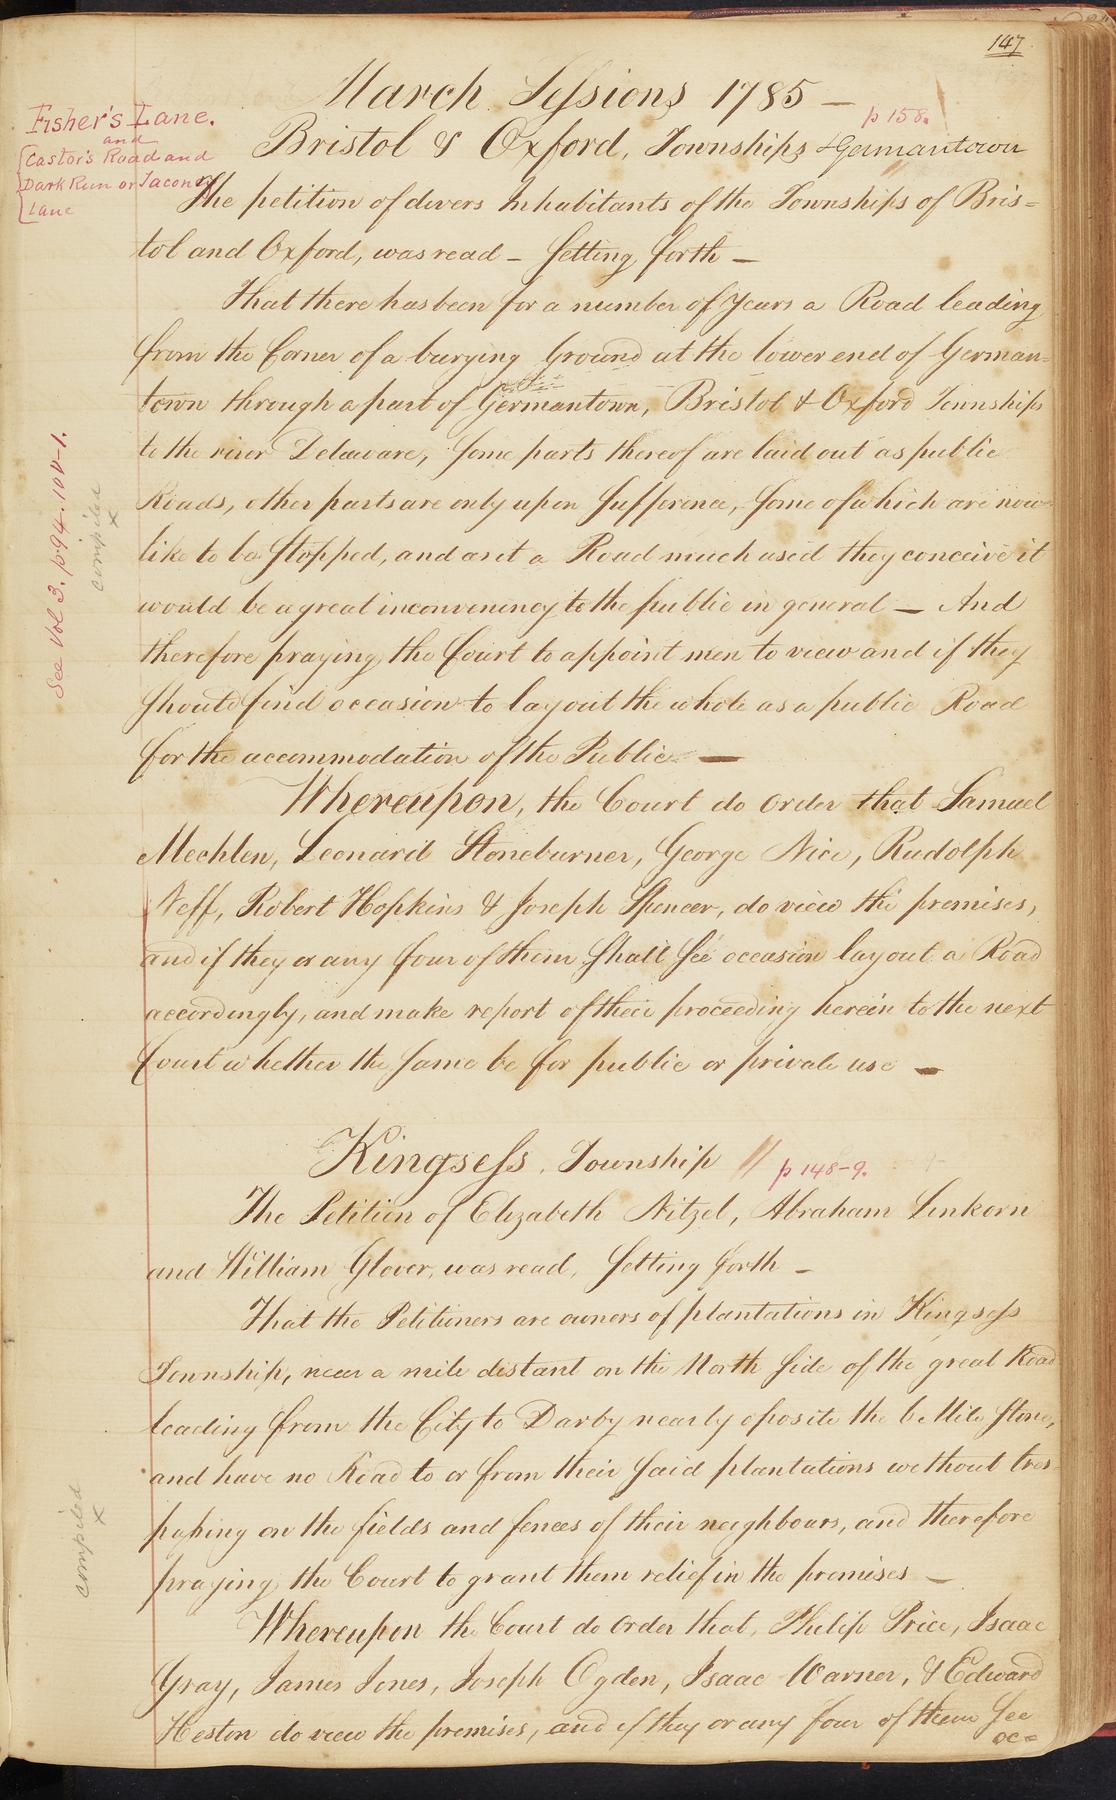 147
March Sessions 1785 —
p 158.
Fisher's Lane.
and
Castor's Road and
Dark Run or Tacony
Lane
Bristol & Oxford, Townships & Germantown
The petition of divers Inhabitants of the Townships of Bris=
tol and Oxford, was read — Setting forth —
That there has been for a number of Years a Road leading
from the Corner of a burying Ground at the lower end of German=
town through a part of Germantown, Bristol & Oxford Townships
to the river Delaware, Some parts thereof are laid out as public
Roads, other parts are only upon Sufference, Some of which are now
like to be Stopped, and as it a Road much used they conceive it
would be a great inconveniency to the public in general — And
therefore praying the Court to appoint men to view and if they
Should find occasion to lay out the whole as a public Road
for the accommodation of the Public —
See Vol 3. p 94. 104-1.
compiled
x
Whereupon, the Court do order that Samuel
Mechlen, Leonard Stoneburner, George Nice, Rudolph
Neff, Robert Hopkins & Joseph Spencer, do view the premises,
and if they or any four of them Shall See occasion lay out a Road
accordingly, and make report of their proceeding herein to the next
Court whether the Same be for public or private use —
Kingsess, Township // p 148-9.
The Petition of Elizabeth Nitzel, Abraham Linkorn
and William Glover, was read, Setting forth —
That the Petitioners are owners of plantations in Kingsess
Township, near a mile distant on the North Side of the great Road
leading from the City to Darby nearly oposite the 6 Mile Stone,
and have no Road to or from their Said plantations without tres
passing on the fields and fences of their neighbours, and therefore
praying the Court to grant them relief in the premises —
compiled
x
Whereupon the Court do order that, Philip Price, Isaac
Gray, James Jones, Joseph Ogden, Isaac Warner, & Edward
Heston do view the premises, and if they or any four of them See
oc=